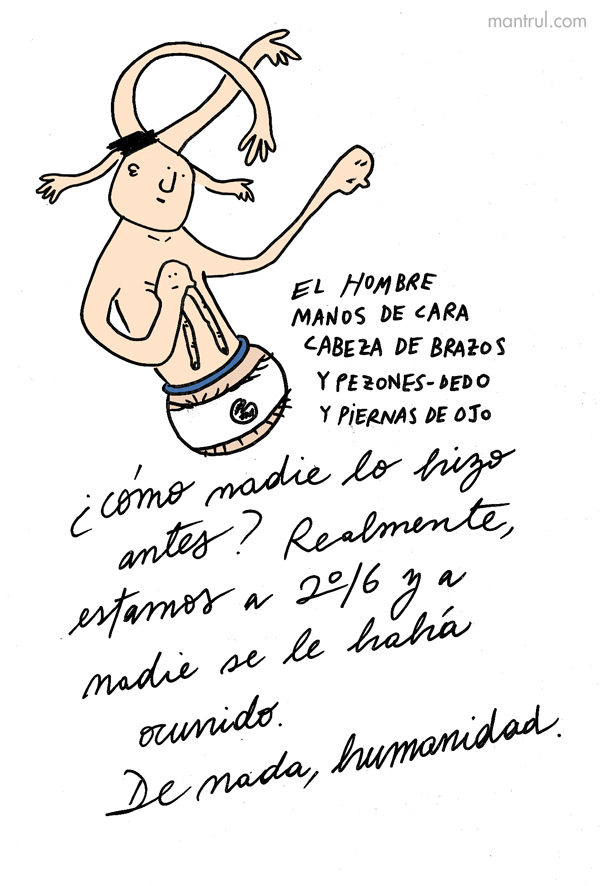 mantrul.com
EL HOMBRE
MANOS DE CARA
CABEZA DE BRAZOS
Y PEZONES-DEDO
Y PIERNAS DE OJO
¿cómo nadie lo hizo
antes? Realmente,
estamos a 2016 y a
nadie se le había
ocurrido.
De nada, humanidad.